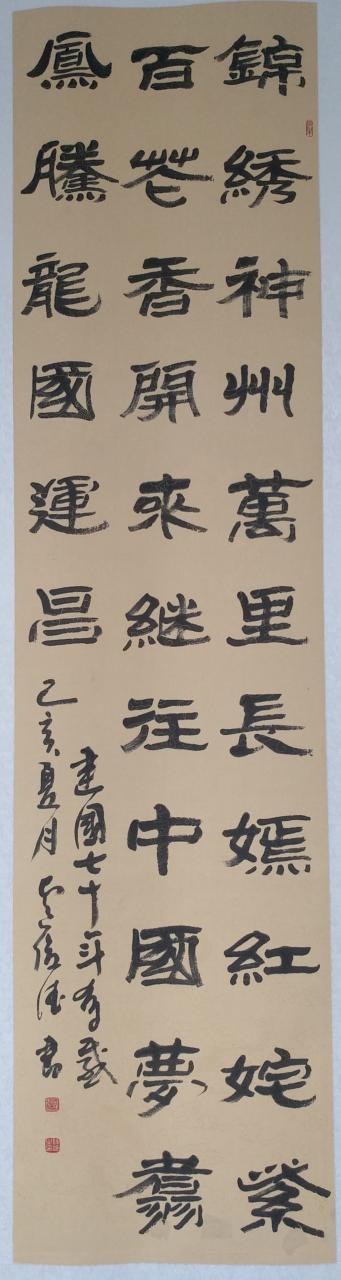 錦綉神州萬里長嫣紅姹紫
百花香開來継往中國夢翥
鳳騰龍國運昌
建國七十年有感
己亥夏月書